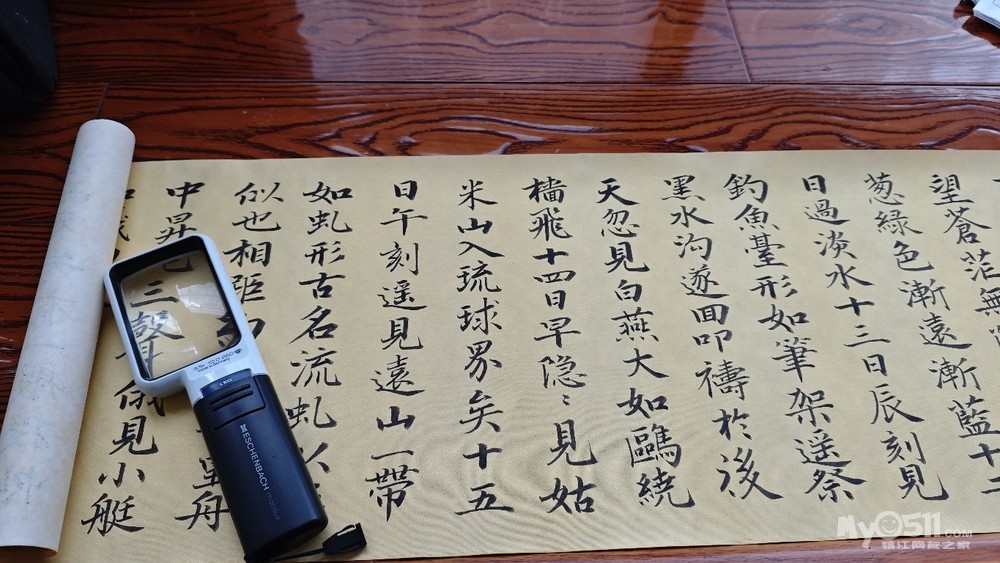 望蒼茫無
葱綠色漸遠漸藍十二
日過淡水十三日辰刻見
釣魚臺形如筆架遥祭
黑水沟遂回叩禱於後
天忽見白燕大如鷗繞
檣飛十四日早隐〻見姑
米山入琉球界矣十五
日午刻遥見遠山一帶
如虬形古名流虬以
似也相距
中昇三聲舟
俄見小艇
ESCHENBACH
mobilux
My0511.COM
镇江网友之家